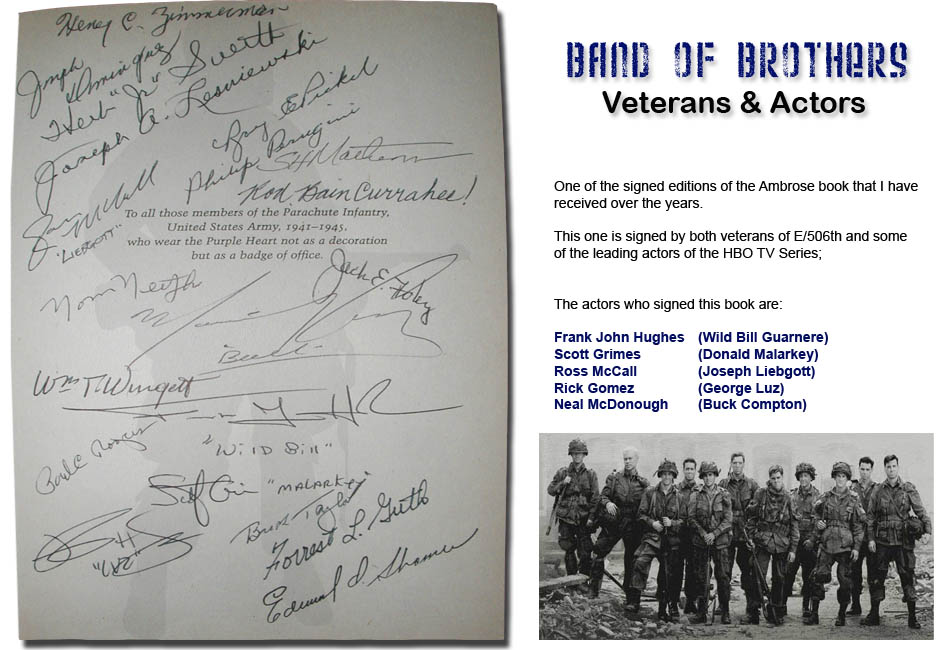 Henry C. Zimmerman
Joseph
Dominguez
Herb "Jr" Suerth
Joseph A. Lesniewski
Philip Perugini
Rod Bain Currahee!
To all those members of the Parachute Infantry,
United States Army, 1941–1945,
who wear the Purple Heart not as a decoration
but as a badge of office.
"LIEBGOTT"
Jack E. Foley
Norm Neitzke
"Buck"
Wm T. Wingett
"Wild Bill"
"MALARKEY"
Buck Taylor
"LUZ"
Forrest L. Guth
Edward D. Shames
BAND OF BROTHERS
Veterans & Actors
One of the signed editions of the Ambrose book that I have
received over the years.
This one is signed by both veterans of E/506th and some
of the leading actors of the HBO TV Series;
The actors who signed this book are:
Frank John Hughes (Wild Bill Guarnere)
Scott Grimes (Donald Malarkey)
Ross McCall (Joseph Liebgott)
Rick Gomez (George Luz)
Neal McDonough (Buck Compton)